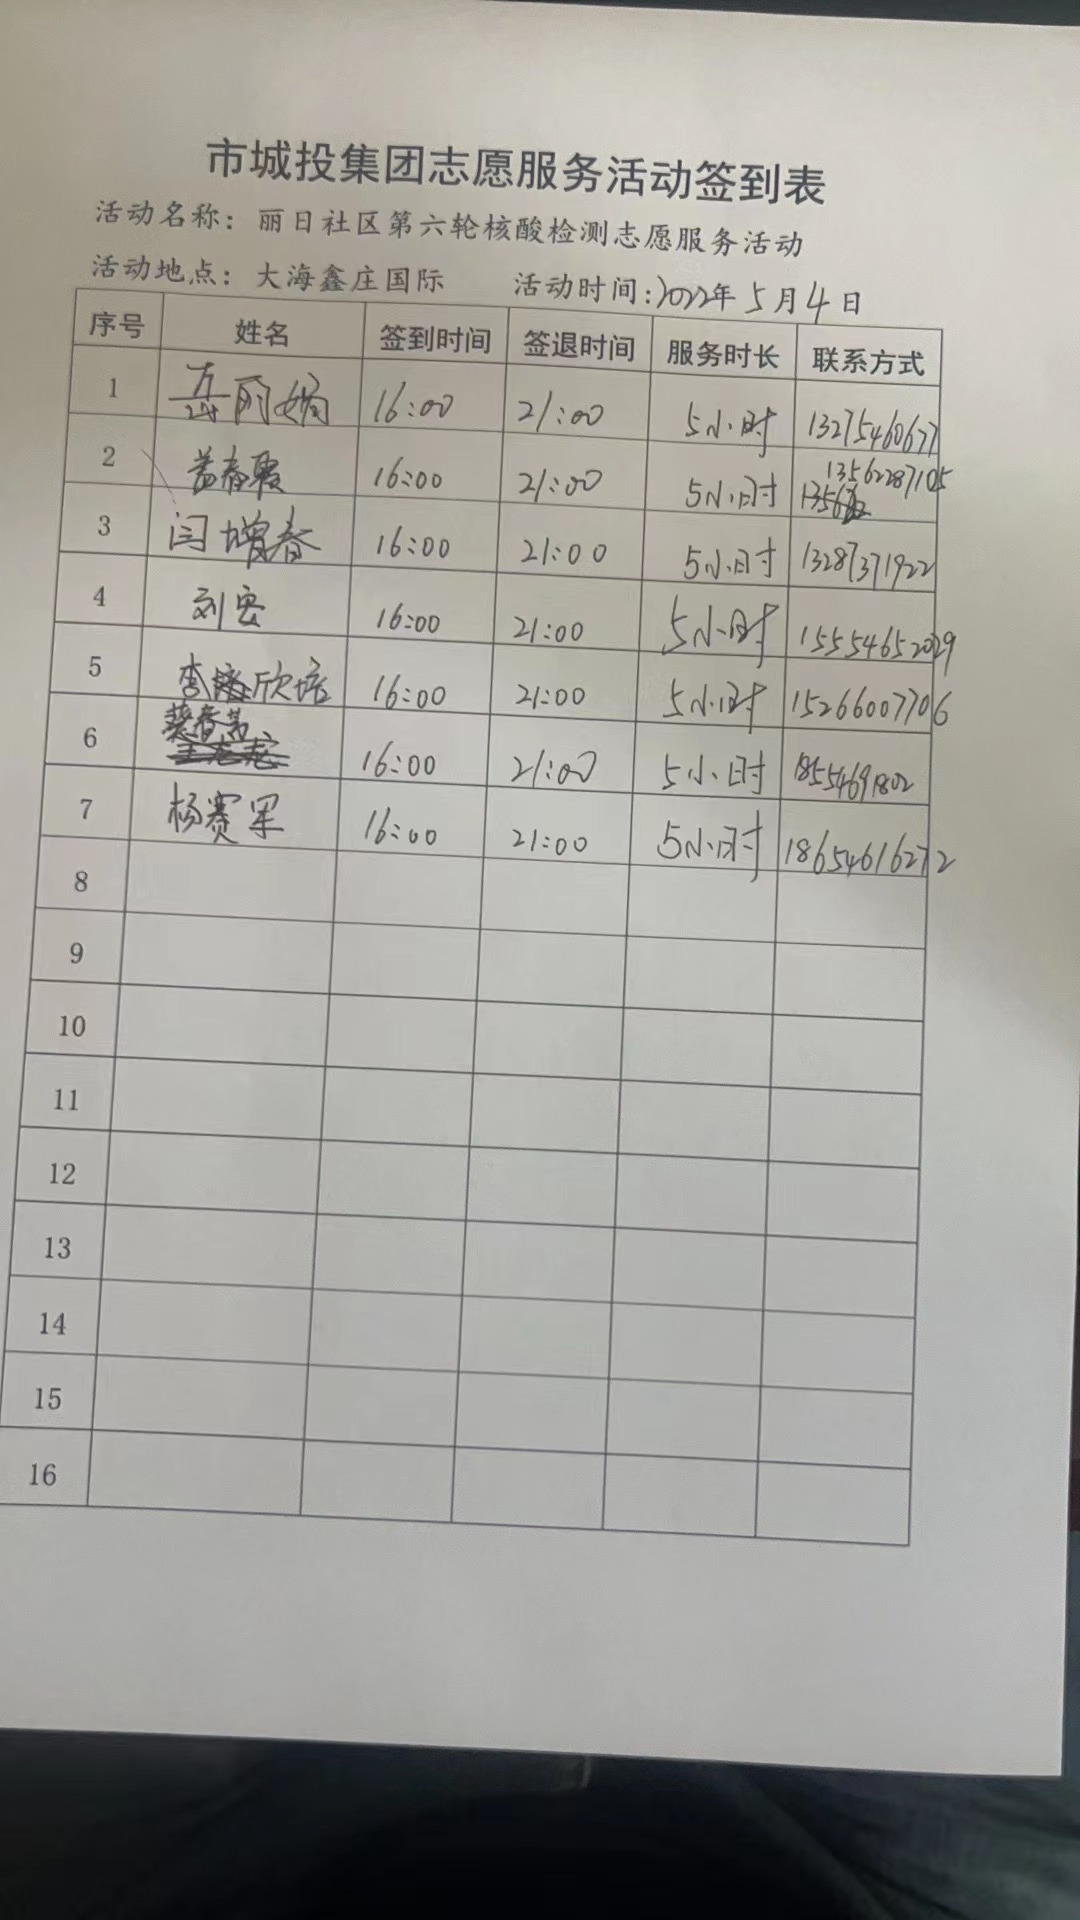 市城投集团志愿服务活动签到表
活动名称：丽日社区第六轮核酸检测志愿服务活动
活动地点：大海鑫庄国际 活动时间：2022年5月4日
序号 姓名 签到时间 签退时间 服务时长 联系方式
1 岳丽娟 16:00 21:00 5小时 13275460677
2 16:00 21:00 5小时 13562287105
3 闫增春 16:00 21:00 5小时 13287371922
4 刘宏 16:00 21:00 5小时 15554652029
5 李欣培 16:00 21:00 5小时 15266007706
6 16:00 21:00 5小时 18554691802
7 杨赛军 16:00 21:00 5小时 18654616272
8
9
10
11
12
13
14
15
16